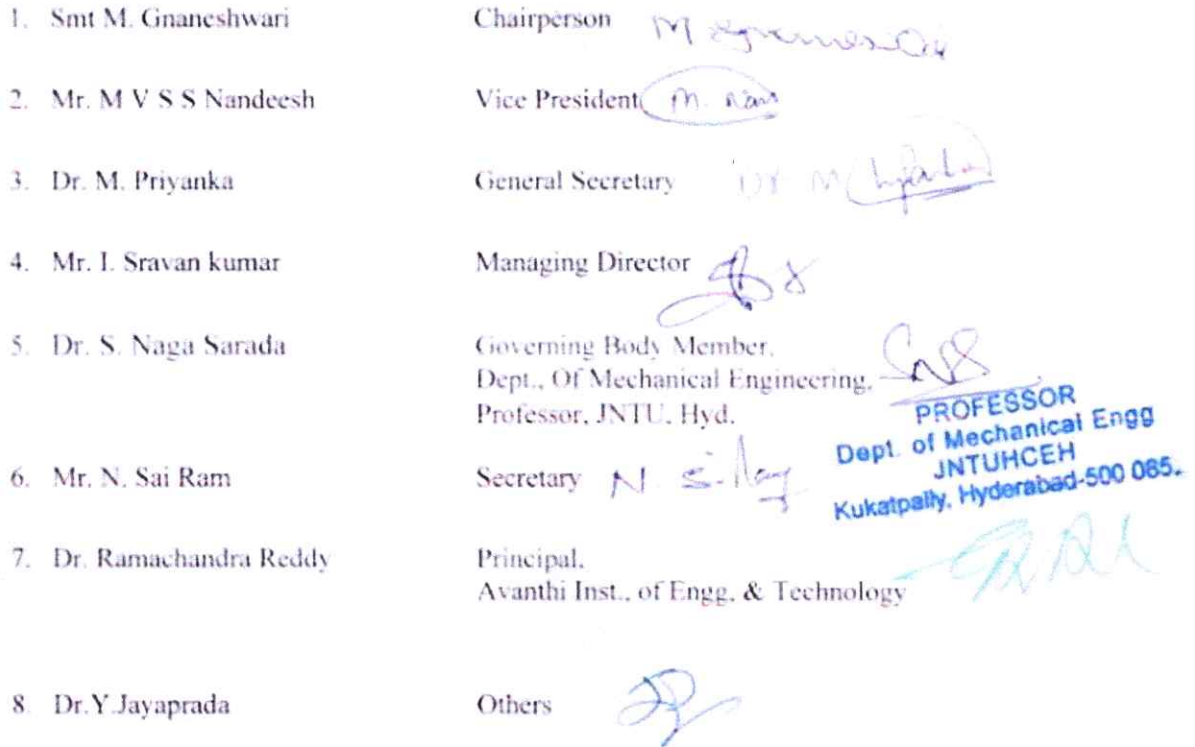 1. Smt M. Gnaneshwari Chairperson
2. Mr. M V S S Nandeesh Vice President
3. Dr. M. Priyanka General Secretary Dr M
4. Mr. I. Sravan kumar Managing Director
5. Dr. S. Naga Sarada Governing Body Member,
Dept., Of Mechanical Engineering,
Professor, JNTU, Hyd.
PROFESSOR
Dept. of Mechanical Engg
JNTUHCEH
Kukatpally, Hyderabad-500 085.
6. Mr. N. Sai Ram Secretary N.
7. Dr. Ramachandra Reddy Principal,
Avanthi Inst., of Engg, & Technology
8. Dr.Y.Jayaprada Others